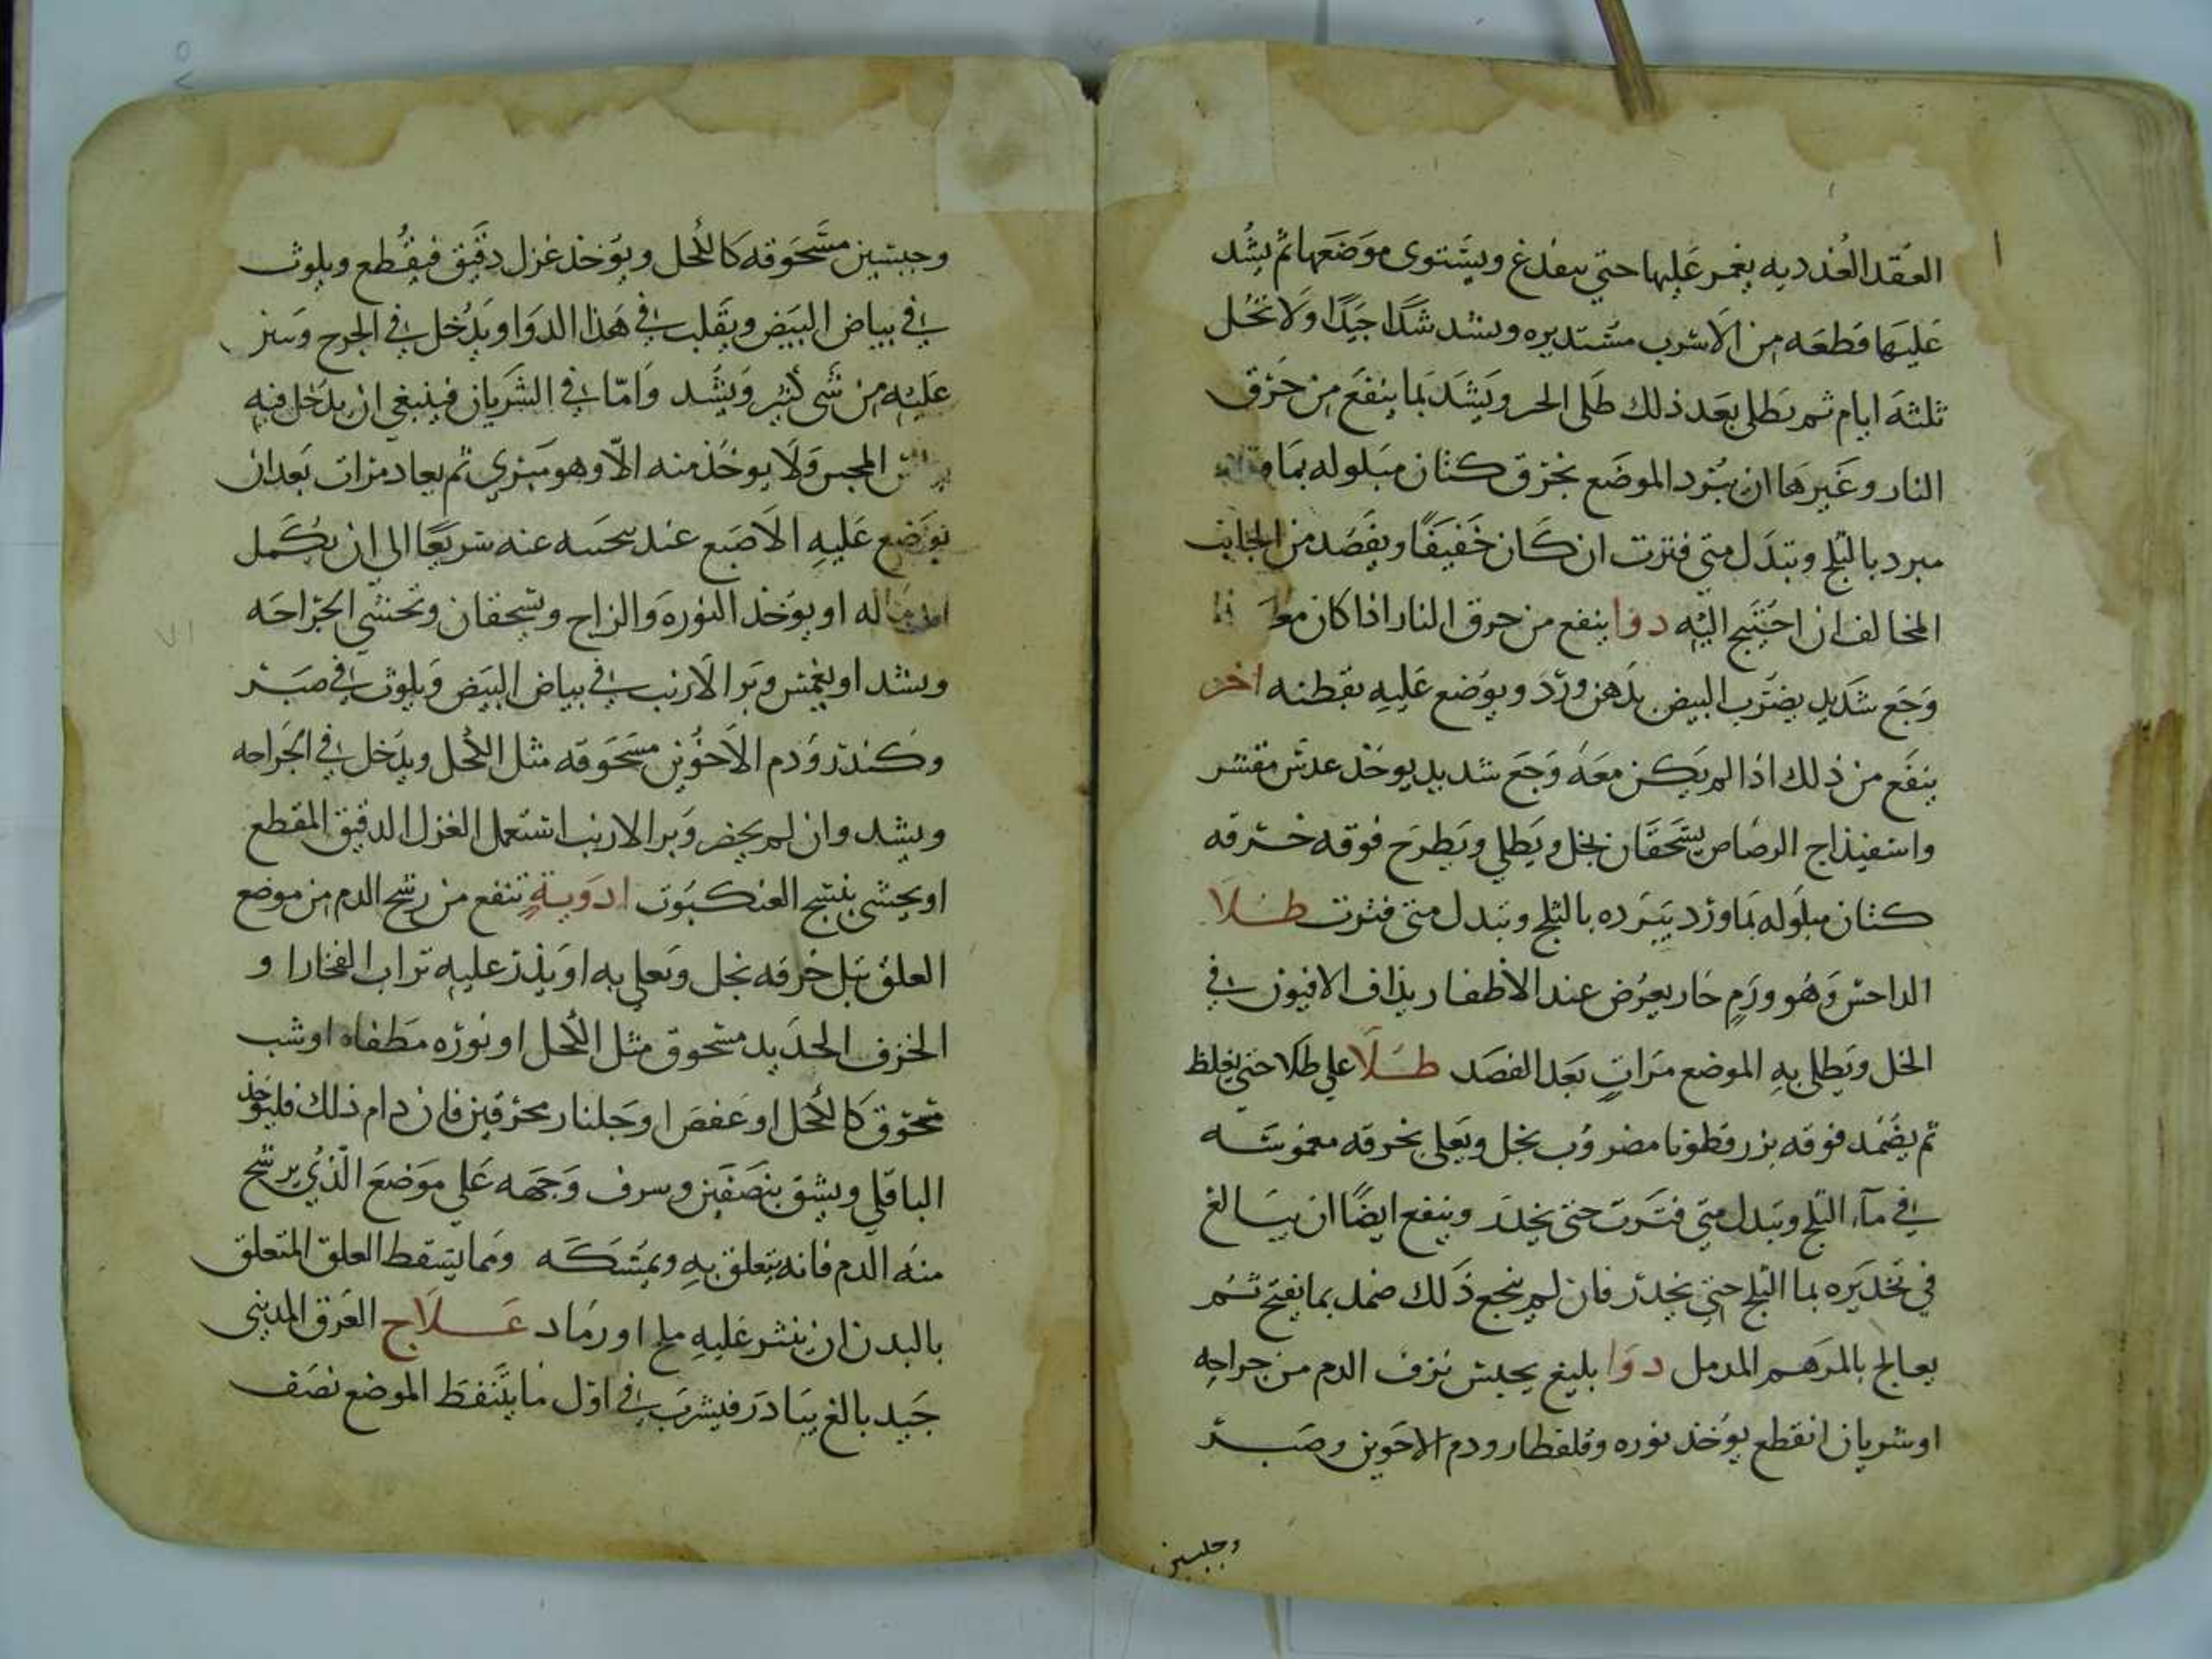 العقد الغدديه يغمر عليها حتى يتفدغ ويستوى موضعها ثم يشد
عليها قطعه من الاسرب مستديره ويشد شدا جيدا ولا تحل
ثلثة ايام ثم يطلى بعد ذلك طلى الحر ويشد بما ينفع من حرق
النار وغيرها ان يبرد الموضع بخرق كتان مبلوله بما
مبرد بالثلج وتبدل متى فترت ان كان خفيفا ويفصد من الجانب
المخالف ان احتيج اليه دوا ينفع من حرق النار اذا كان
وجع شديد يضرب البيض بدهن ورد ويوضع عليه بقطنه اخر
ينفع من ذلك اذا لم يكن معه وجع شديد يوخذ عدس مقشر
واسفيذاج الرصاص يسحقان بخل ويطلي ويطرح فوقه خرقه
كتان مبلوله بما ورد يبرده بالثلج وتبدل متى فترت طلا
الداحس وهو ورم حار يعرض عند الاظفار يذاف الافيون في
الخل ويطلى به الموضع مرات بعد الفصد طلا على طلا حتى يغلظ
ثم يضمد فوقه بزر قطونا مضروب بخل ويعلى بخرقه مغموسه
في مآء الثلج وتبدل متى فترت حتى يخدر وينفع ايضا ان يبالغ
في تخديره بما الثلج حتى يخدر فان لم ينجع ذلك ضمد بما يفتح ثم
يعالج بالمرهم المدمل دوا بليغ يحبس نزف الدم من جراحه
او شريان انقطع يوخذ نوره وقلقطار ودم الاخوين وصبر
وجبسين
وجبسين مسحوقه كالكحل ويوخذ غزل دقيق فيقطع ويلوث
في بياض البيض ويقلب في هذا الدوا ويدخل في الجرح
عليه من شي كثير ويشد واما في الشريان فينبغي ان يدخل فيه
المجس ولا يوخذ منه الا وهو مبري ثم يعاد مرات بعد ان
يوضع عليه الاصبع عند عنه سريعا الى ان يكمل
او يوخذ النوره والزاج ويسحقان وتحشى الجراحه
ويشد او يغمس وبر الارنب في بياض البيض ويلوث في صبر
وكندر ودم الاخوين مسحوقه مثل الكحل ويدخل في الجراحه
ويشد وان لم يحضر وبر الارنب استعمل الغزل الدقيق المقطع
او يحشى بنسج العنكبوت ادوية تنفع من رشح الدم من موضع
العلق تبل خرقه بخل وتعلى به او يذر عليه تراب الفخار ا و
الخزف الحديد مسحوق مثل الكحل او نوره مطفاه او شب
مسحوق كالكحل او عفص ا و جلنار محرقين فان دام ذلك فليوخذ
الباقلى ويشق بنصفين وجهه على موضع الذي يرشح
منه الدم فانه يتعلق به ويمسكه ومما يسقط العلق المتعلق
بالبدن ان ينشر عليه ملح او رماد علاج العرق المديني
جيد بالغ يبادر فيشرب في اول ما يتنفط الموضع نصف